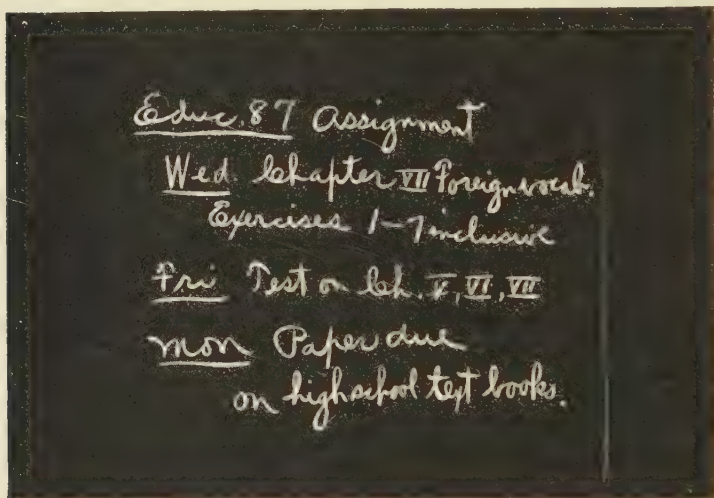 Educ. 87 Assignment
Wed Chapter VII Foreign vocab.
Exercises 1-7 inclusive
Fri Test on Ch. V, VI, VII
Mon Paper due
on high school text books.